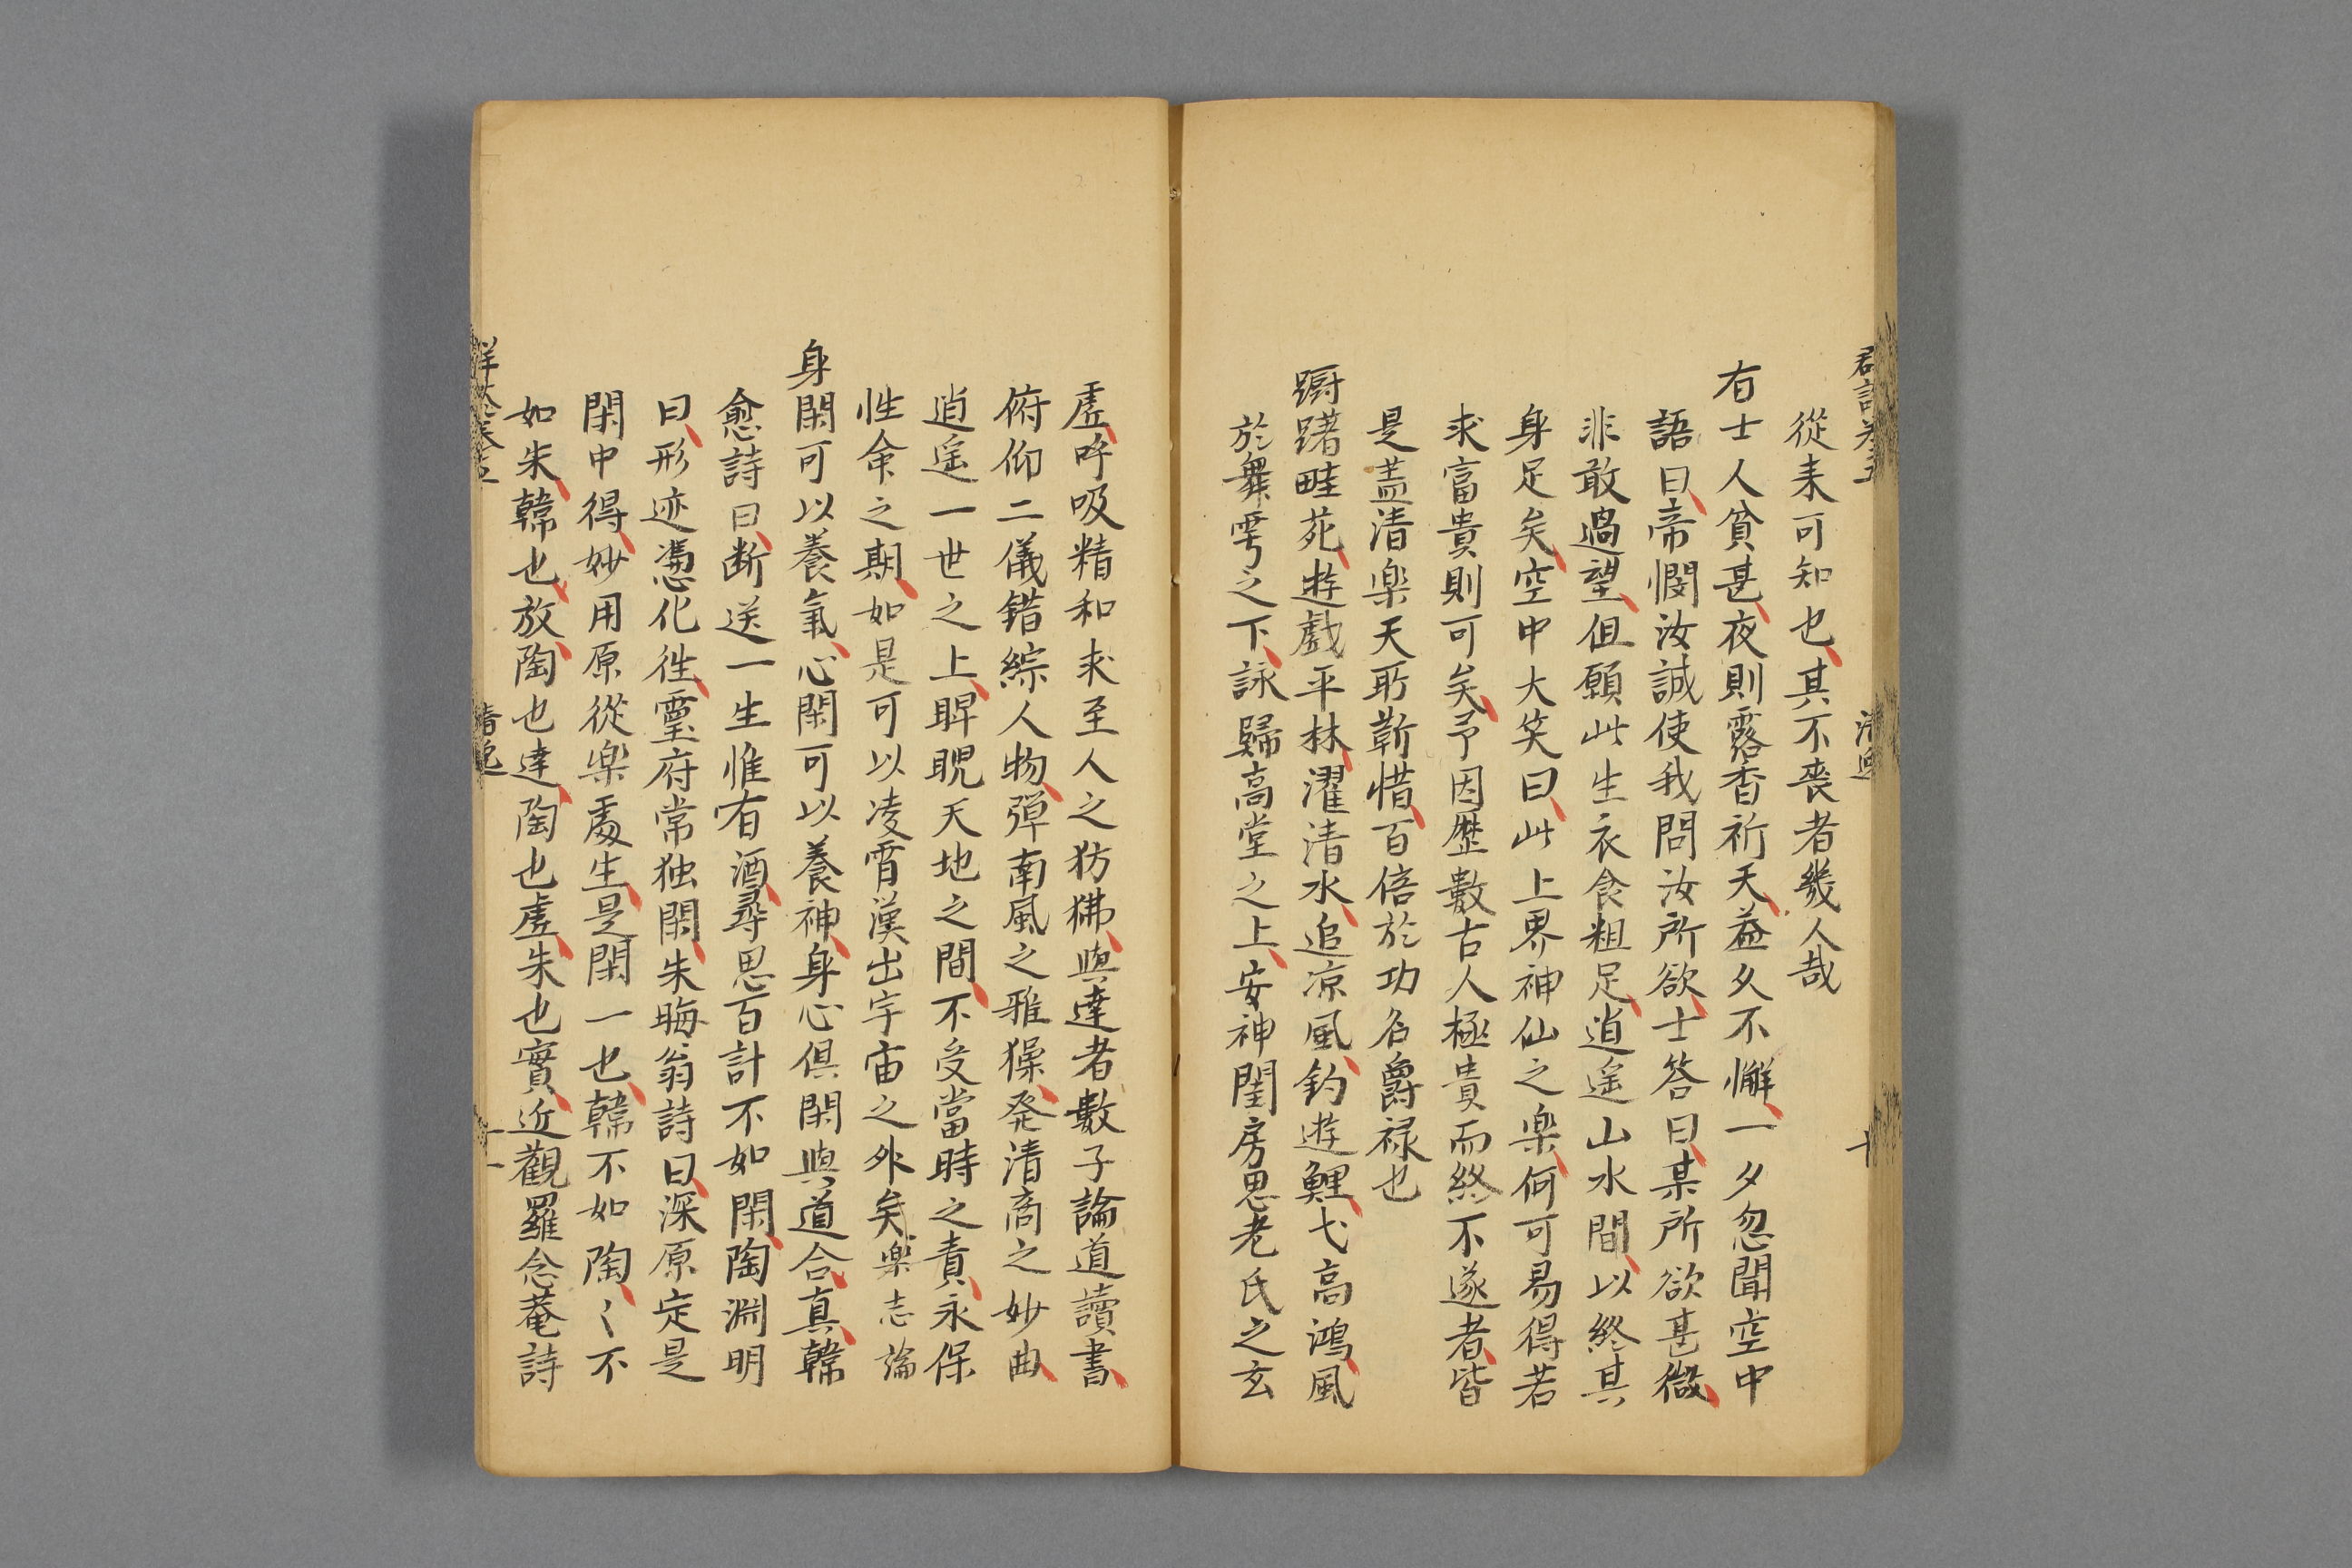 從来可知也其不喪者幾人哉
有士人貧甚夜則露香祈天益久不懈一夕忽聞空中
語曰帝憫汝誠使我問汝所欲士答曰某所欲甚微
非敢過望但願此生衣食粗足逍遥山水間以終其
身足矣空中大笑曰此上界神仙之楽何可易得若
求富貴則可矣予因歷數古人極貴而終不遂者皆
是盖清楽天所靳惜百倍於功名爵禄也
蹰躇畦苑遊戯平林濯清水追凉風釣遊鯉弋高鴻風
於舞雩之下詠歸高堂之上安神閨房思老氏之玄
虚呼吸精和求至人之彷彿與達者數子論道讀書
俯仰二儀錯綜人物彈南風之雅操発清商之妙曲
逍遥一世之上睥睨天地之間不受當時之責永保
性命之期如是可以凌霄漢出宇宙之外矣 楽志論
身閑可以養氣心閑可以養神身心俱閑與道合真韓
愈詩曰断送一生惟有酒尋思百計不如閑陶淵明
曰形迹憑化徃靈府常独閑朱晦翁詩曰深原定是
閑中得妙用原從楽處生是閑一也韓不如陶〻不
如朱韓也放陶也達陶也虚朱也實近觀羅念菴詩